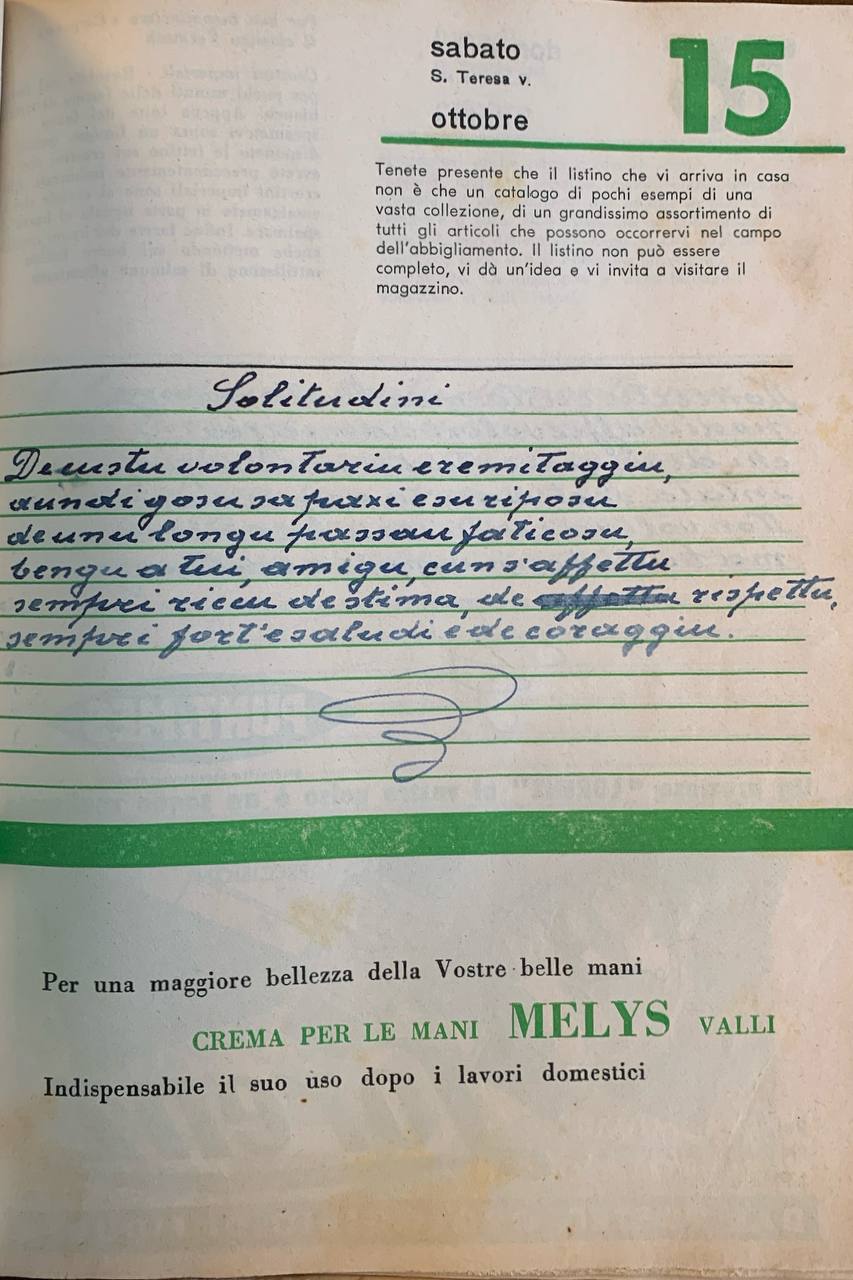 sabato
S. Teresa v.
ottobre
15
Tenete presente che il listino che vi arriva in casa
non è che un catalogo di pochi esempi di una
vasta collezione, di un grandissimo assortimento di
tutti gli articoli che possono occorrervi nel campo
dell'abbigliamento. Il listino non può essere
completo, vi dà un'idea e vi invita a visitare il
magazzino.
Solitudini
De custu volontariu eremitaggiu,
aundi gosu sa paxi e su riposu
de unu longu passau faticosu,
bengu a tui, amigu, cun s'affettu
sempri riccu de stima, de affettu rispettu,
sempri fort'e saludi e de coraggiu.
Per una maggiore bellezza della Vostre belle mani
CREMA PER LE MANI MELYS VALLI
Indispensabile il suo uso dopo i lavori domestici